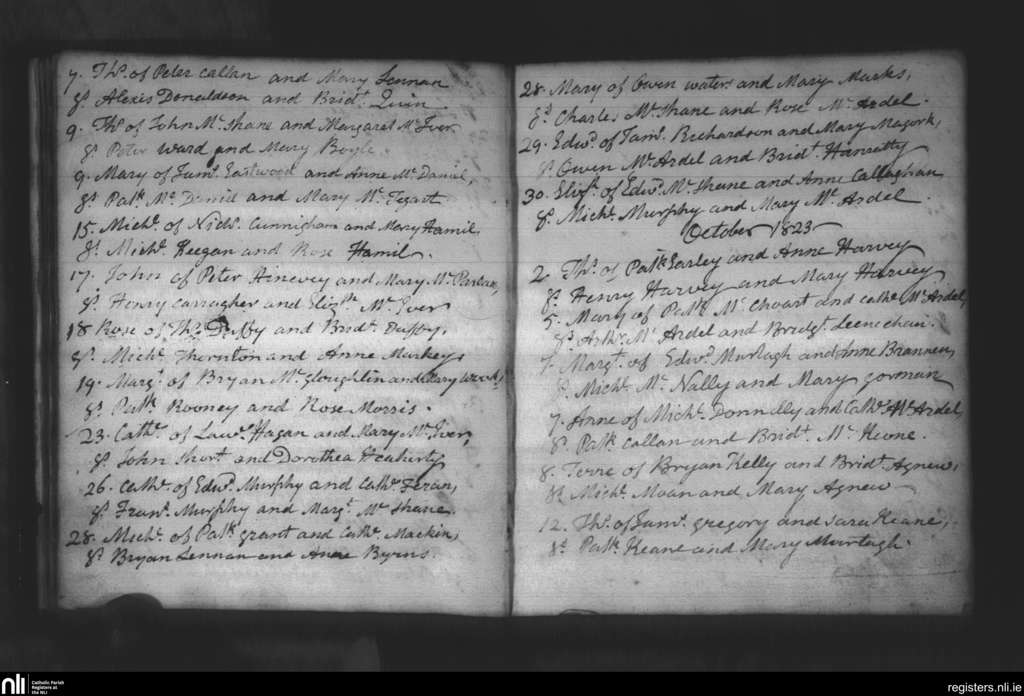 7. Thos. of Peter Callan and Mary Lennan
Ss. Alexis Donaldson and Bridt. Quin
9. Thos. of John Mc. Shane and Margaret Mc. Iver
Ss. Peter Ward and Mary Boyle.
9. Mary of Jams. Eastwood and Anne Mc. Daniel,
Ss. Patk. Mc. Daniel and Mary Mc. Tegart
15. Michl. of Nichs. Cunnigham and Mary Hamil,
Ss. Michl. Keegan and Rose Hamil.
17. John of Peter Hinevey and Mary Mc. Parlan,
Ss. Henry Carragher and Elizth. Mc. Iver
18 Rose of Thos. Duffy and Bridt. Duffy.
Ss. Michl. Thornton and Anne Markey
19. Margt. of Bryan Mc. Gloughlin and Mary
Ss. Patk. Rooney and Rose Morris.
23. Cathe. of Lawe. Hagan and Mary Mc. Iver,
Ss. John Short and Dorothea Heaherty
26. Cathe. of Edwd. Murphy and Cathe. Feran,
Ss. Frans. Murphy and Margt. Mc. Shane.
28. Michl. of Patk. Grant and Cathe. Mackin,
Ss. Bryan Lennan and Anne Byrns.
28. Mary of Owen Water and Mary Marks,
Ss. Charles Mc. Shane and Rose Mc. Ardel.
29. Edwd. of Jams. Richardson and Mary Magork,
Ss. Owen Mc. Ardel and Bridt. Hanratty
30. Elizh. of Edwd. Mc. Shane and Anne Callaghan
Ss. Michl. Murphy and Mary Mc. Ardel.
October 1823
2 Thos. of Patk. Earley and Anne Harvey
Ss. Henry Harvey and Mary Harvey
5. Mary of Patk. Mc. Choart and Cathe. Mc. Ardel,
Ss. Arthr. Mc. Ardel and Bridgt. Leenechan.
7. Margt. of Edwd. Murtagh and Anne Brannen,
Ss. Michl. Mc. Nally and Mary Gorman
7. Anne of Michl. Donnelly and Cathe. Mc. Ardel,
Ss. Patk. Callan and Bridt. Mc. Keone.
8. Terre of Bryan Kelly and Bridt. Agnew,
Ss. Michl. Moan and Mary Agnew
12. Thos. of Jams. Gregory and Sara Keane,
Ss. Patk. Keane and Mary Murtagh.
nli
Catholic Parish
Registers at
the NLI
registers.nli.ie